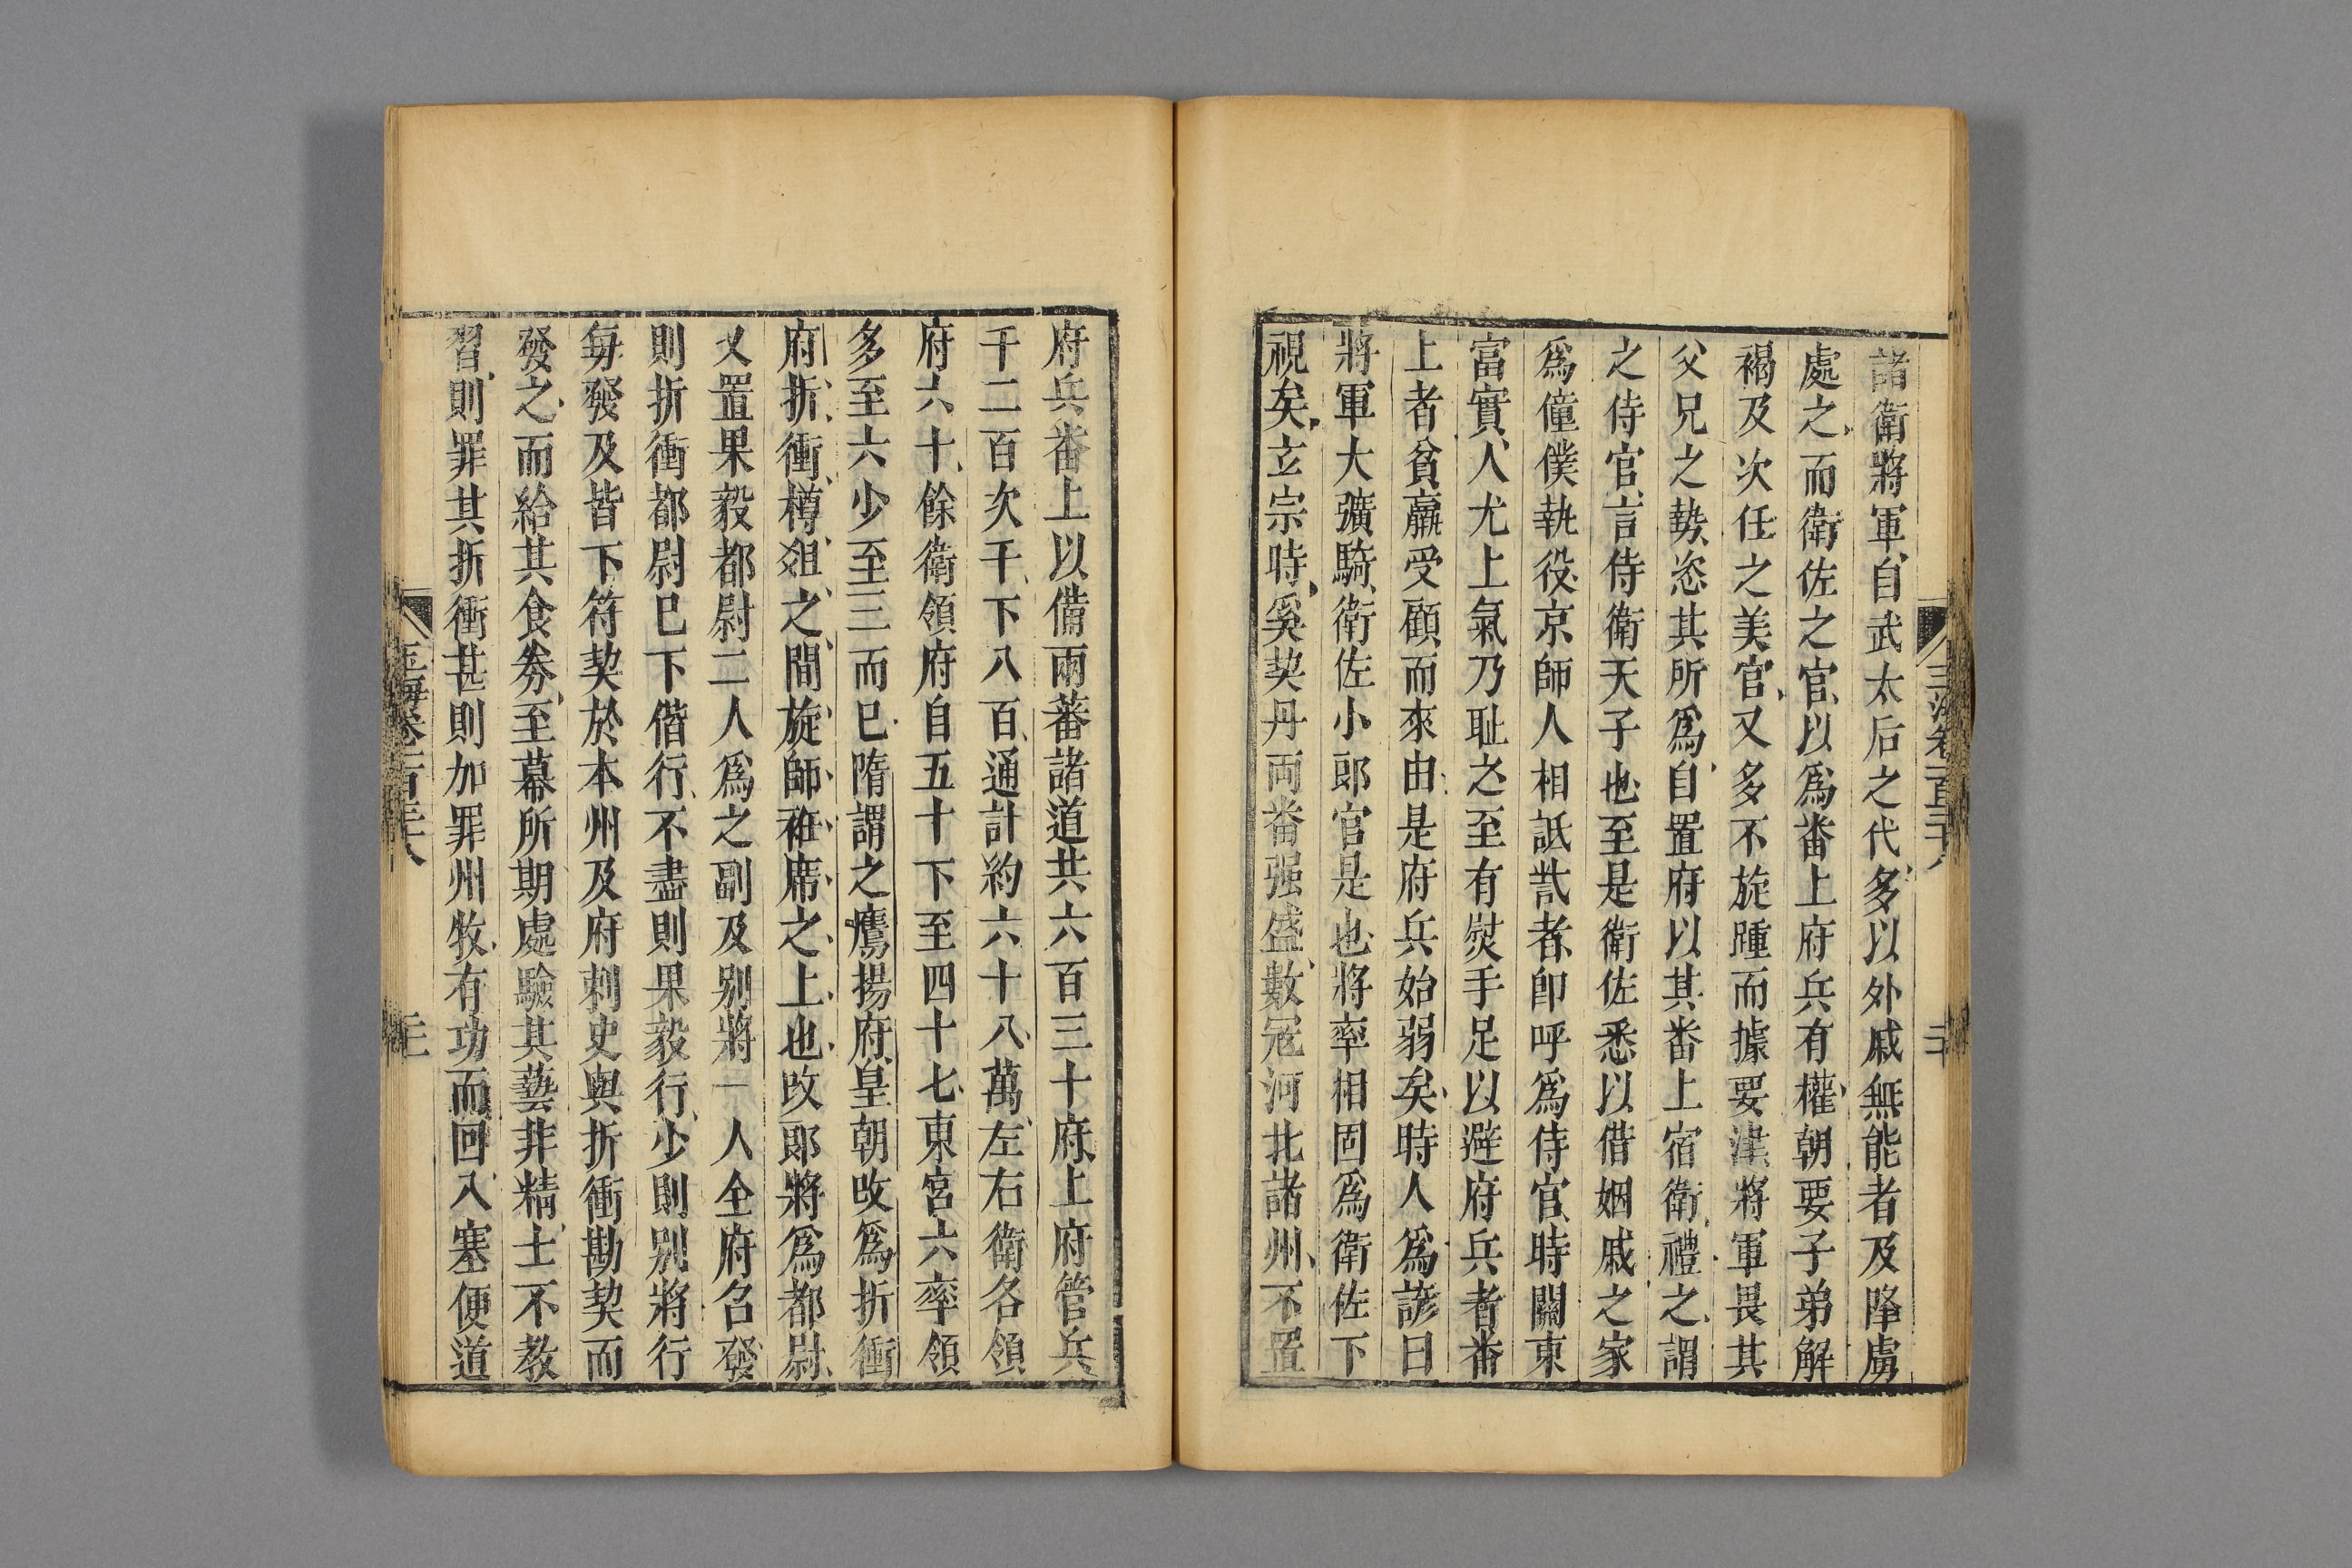 諸衛將軍自武太后之代多以外戚無能者及降虜
處之而衛佐之官以爲番上府兵有權朝要子弟解
褐及次任之美官又多不旋踵而據要津將軍畏其
父兄之勢恣其所爲自置府以其番上宿衛禮之謂
之侍官言侍衛天子也至是衛佐悉以借姻戚之家
爲僮僕執役京師人相詆訾者即呼爲侍官時關東
富實人尤上氣乃耻之至有熨手足以避府兵者番
上者貧羸受顧而來由是府兵始弱矣時人爲諺曰
將軍大彍騎衛佐小郎官是也將率相固爲衛佐下
視矣玄宗時奚契丹両番强盛數冦河北諸州不置
府兵番上以備兩蕃諸道共六百三十府上府管兵
千二百次千下八百通計約六十八萬左右衛各領
府六十餘衛領府自五十下至四十七東宮六率領
多至六少至三而已隋謂之鷹揚府皇朝改爲折衝
府折衝樽俎之間旋師袵席之上也改郎將爲都尉
又置果毅都尉二人爲之副及别將一人全府召發
則折衝都尉巳下偕行不盡則果毅行少則别將行
每發及皆下符契於本州及府刺史與折衝勘契而
發之而給其食劵至幕所期處驗其藝非精士不教
習則罪其折衝甚則加罪州牧有功而回入塞便道
玉海卷一百三十八